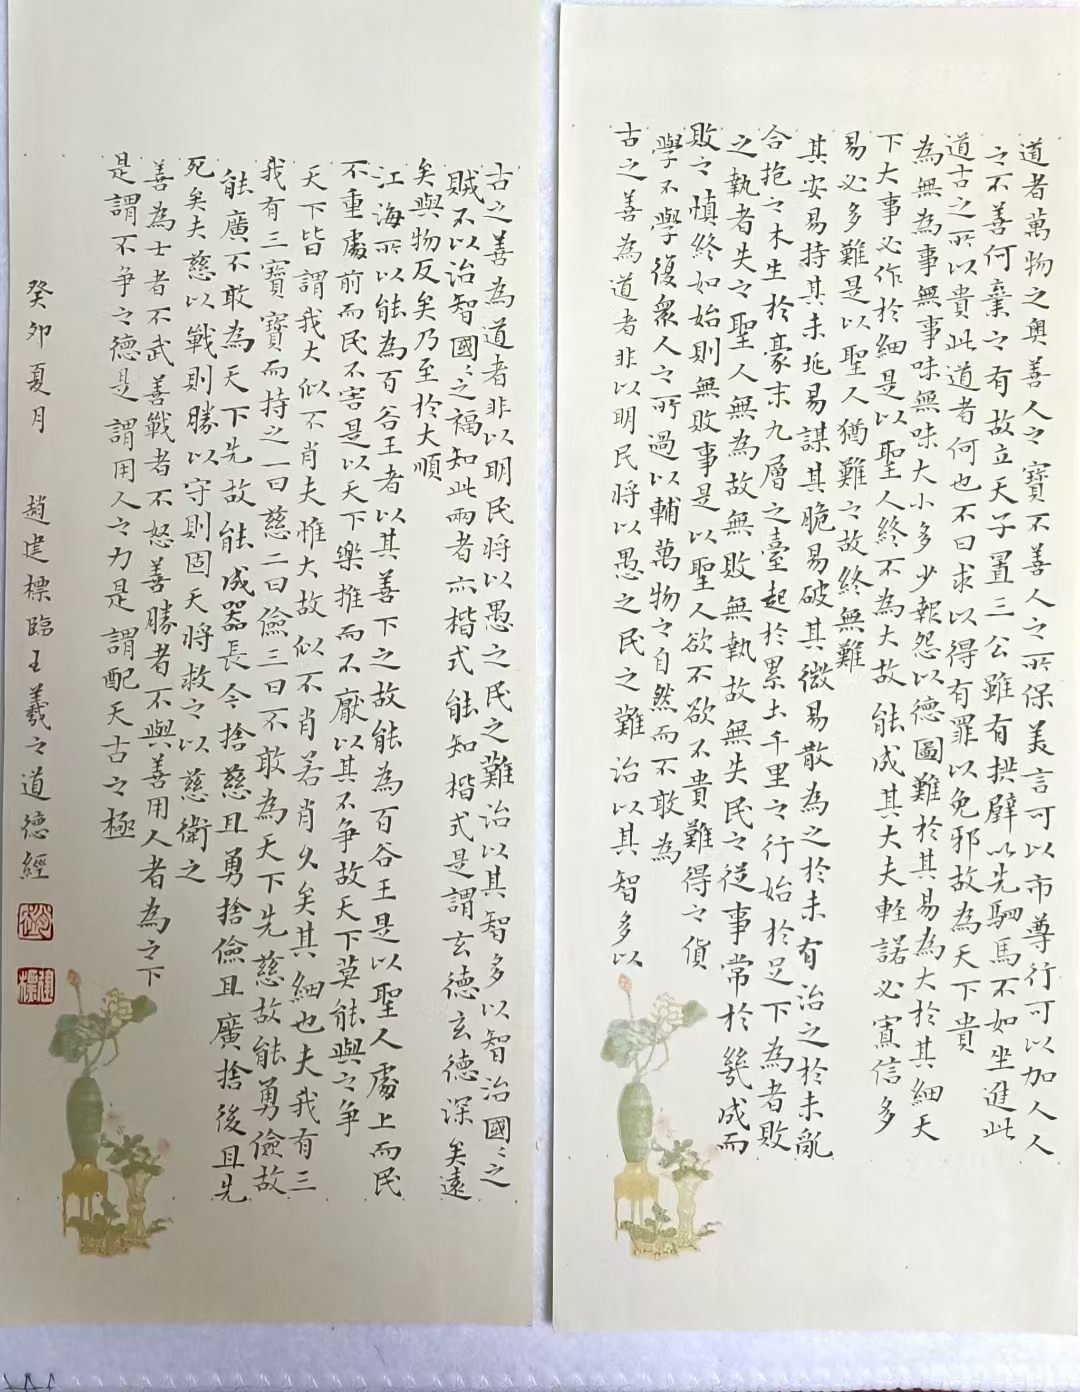 道者萬物之奥善人之寶不善人之所保美言可以市尊行可以加人人
之不善何棄之有故立天子置三公雖有拱璧以先駟馬不如坐進此
道古之所以貴此道者何也不曰求以得有罪以免邪故為天下貴
為無為事無事味無味大小多少報怨以德圖難於其易為大於其細天
下大事必作於細是以聖人終不為大故能成其大夫輕諾必寡信多
易必多難是以聖人猶難之故終無難
其安易持其未兆易謀其脆易破其微易散為之於未有治之於未亂
合抱之木生於豪末九層之臺起於累土千里之行始於足下為者敗
之執者失之聖人無為故無敗無執故無失民之從事常於幾成而
敗之慎終如始則無敗事是以聖人欲不欲不貴難得之貨
學不學復衆人之所過以輔萬物之自然而不敢為
古之善為道者非以明民将以愚之民之難治以其智多以
古之善為道者非以明民将以愚之民之難治以其智多以智治國〻之
賊不以治智國〻之福知此兩者亦楷式能知楷式是謂玄德玄德深矣遠
矣與物反矣乃至於大順
江海所以能為百谷王者以其善下之故能為百谷王是以聖人處上而民
不重處前而民不害是以天下樂推而不厭以其不争故天下莫能與之争
天下皆謂我大似不肖夫惟大故似不肖若肖久矣其細也夫我有三
我有三寶寶而持之一曰慈二曰儉三曰不敢為天下先慈故能勇儉故
能廣不敢為天下先故能成器長今捨慈且勇捨儉且廣捨後且先
死矣夫慈以戰則勝以守則固天将救之以慈衛之
善為士者不武善戰者不怒善勝者不與善用人者為之下
是謂不争之德是謂用人之力是謂配天古之極
癸卯夏月 趙建標臨王羲之道德經
趙
建標